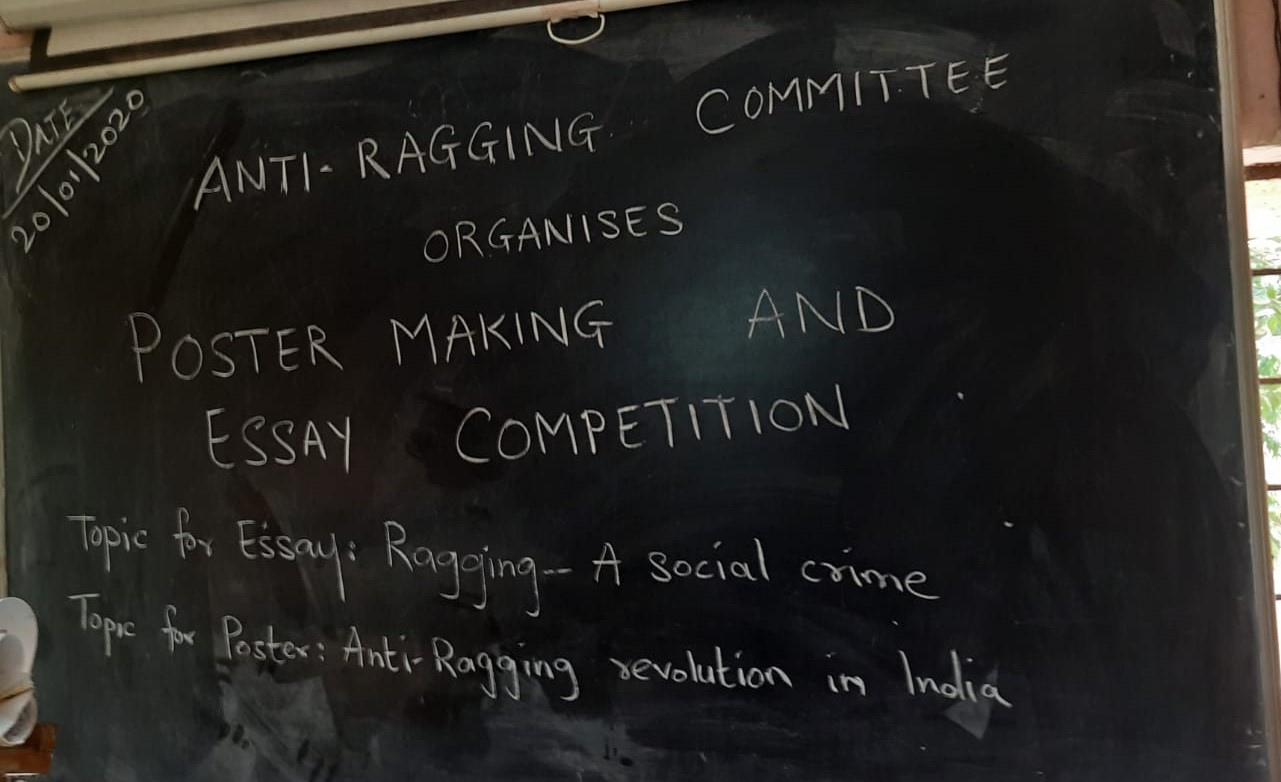 DATE
20/01/2020
ANTI-RAGGING COMMITTEE
ORGANISES
POSTER MAKING AND
ESSAY COMPETITION
Topic for Essay: Ragging-- A social crime
Topic for Poster: Anti-Ragging revolution in India